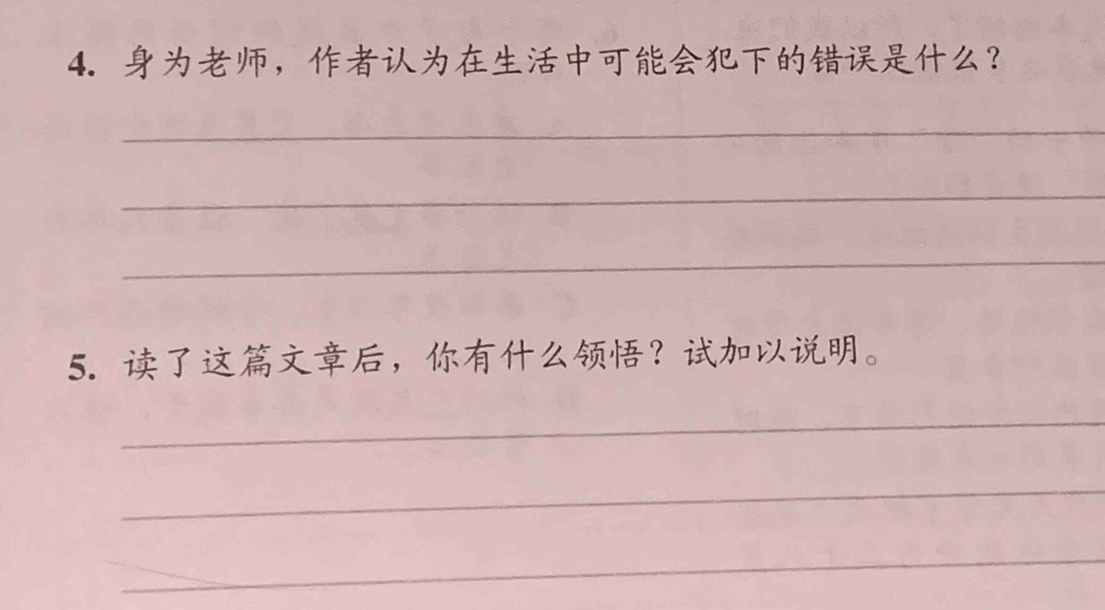 4. 身为老师，作者认为在生活中可能会犯下的错误是什么？
5. 读了这篇文章后，你有什么领悟？试加以说明。